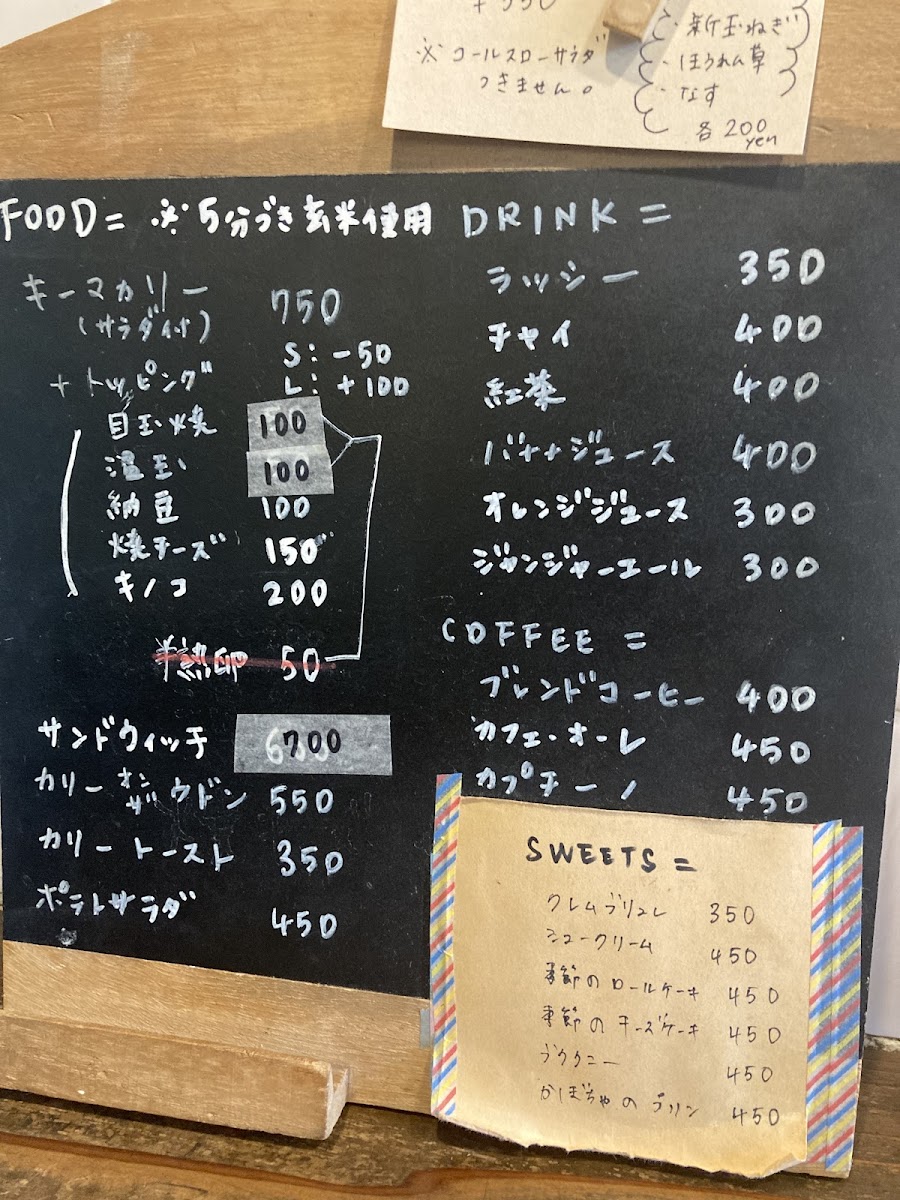 + 550
※ コールスローサラダ
つきません。
・新玉ねぎ
・ほうれん草
・なす
各 200
yen
FOOD= ※5分づき玄米使用
キーマカリー 750
(サラダ付)
S: -50
+トッピング L: +100
目玉焼 100
温玉 100
納豆 100
焼チーズ 150
キノコ 200
半熟卵 50
サンドウィッチ 700
カリーオンザウドン 550
カリートースト 350
ポテトサラダ 450
DRINK=
ラッシー 350
チャイ 400
紅茶 400
バナナジュース 400
オレンジジュース 300
ジンジャーエール 300
COFFEE=
ブレンドコーヒー 400
カフェ・オーレ 450
カプチーノ 450
SWEETS=
クレムブリュレ 350
シュークリーム 450
季節のロールケーキ 450
季節のチーズケーキ 450
ブラウニー 450
かぼちゃのプリン 450